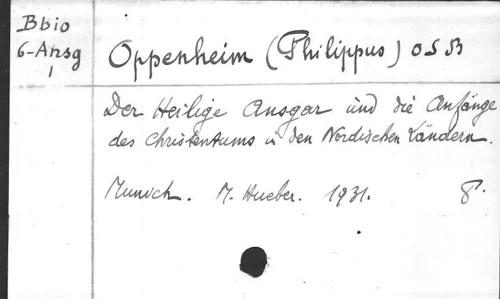 Bbio
6-Ansg
1
Oppenheim (Philippus) OSB
Der Heilige Ansgar und die Anfänge
des Christentums in den Nordischen Ländern.
Munich. M. Hueber. 1931. 8°.